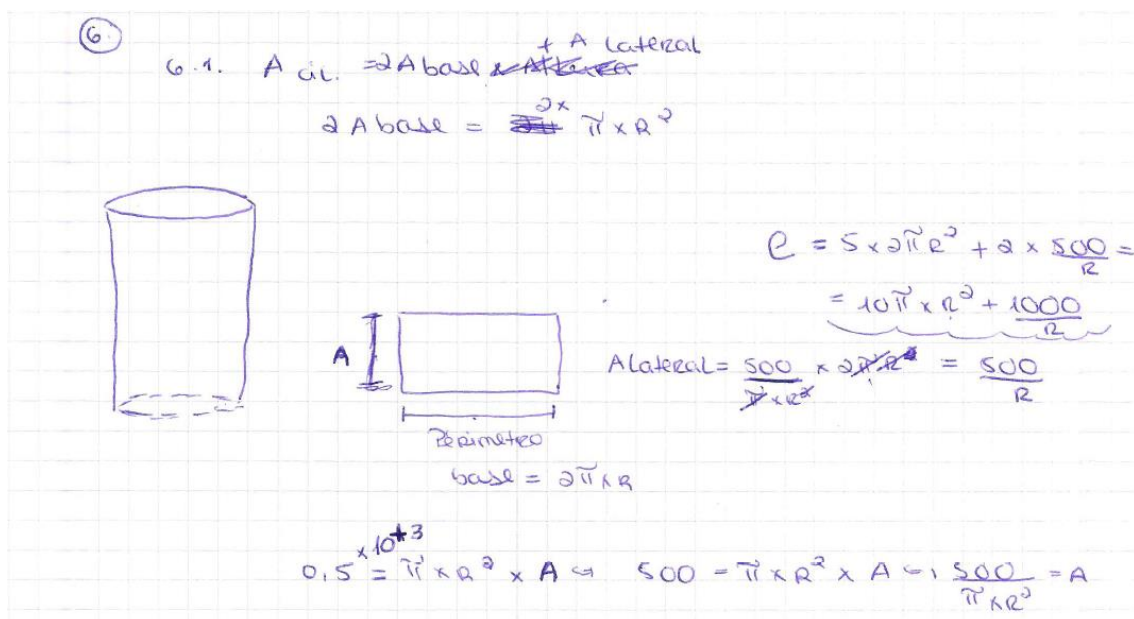 6
6.1. A cil. = 2A base + A lateral
2A base = 2x π x R²
C = 5 x 2πR² + 2 x 500/R =
= 10π x R² + 1000/R
A
A lateral = 500/π x R² x 2πR = 500/R
Périmetro
base = 2π x R
0,5 x10⁺³ = π x R² x A ⇔ 500 = π x R² x A ⇔ 500/π x R² = A